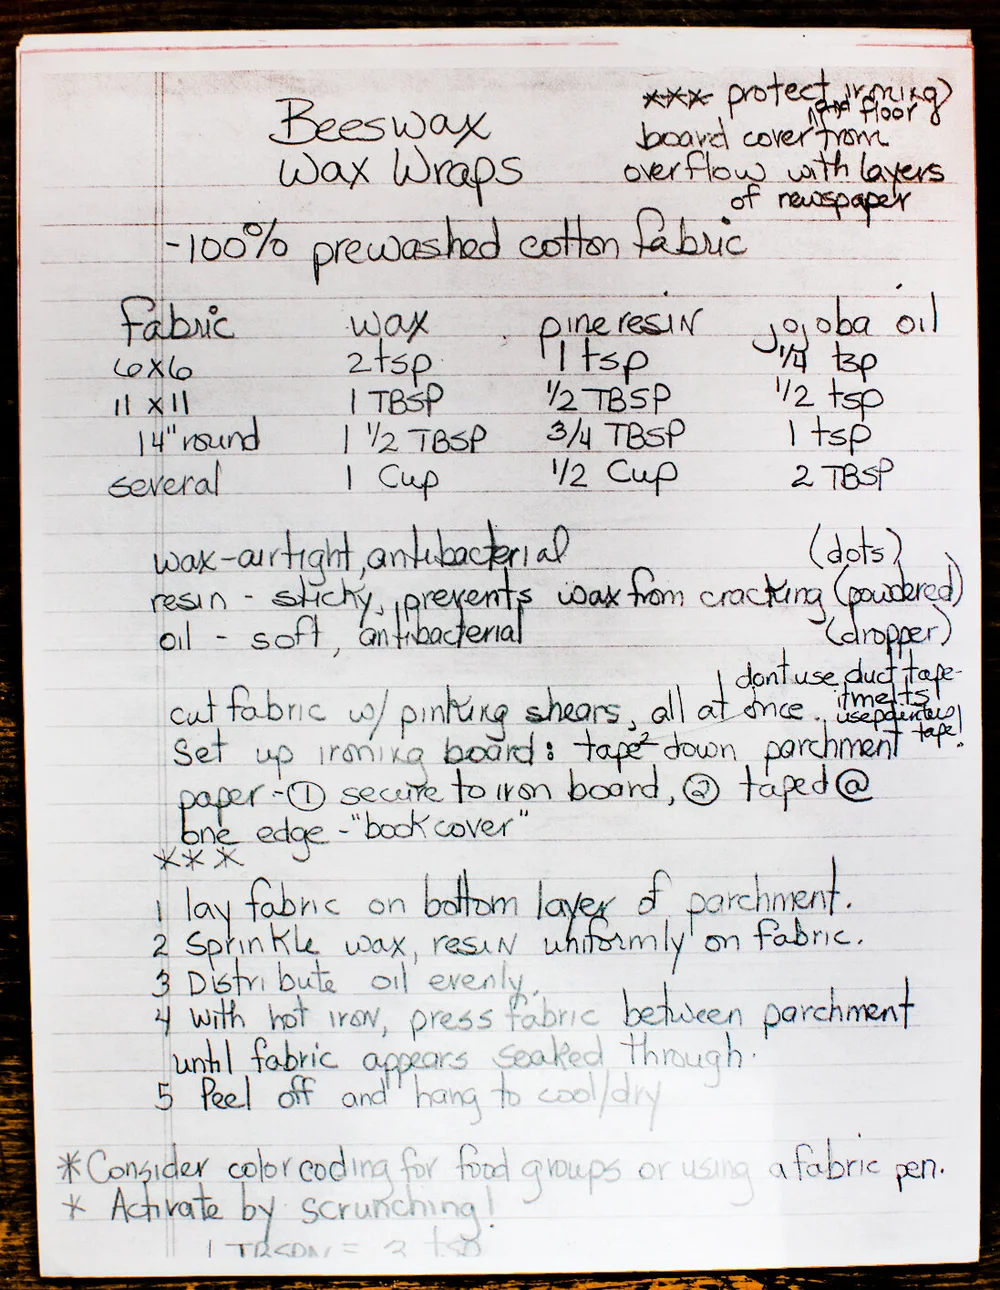 Beeswax
Wax Wraps
*** protect ironing
and floor
board cover from
overflow with layers
of newspaper
-100% prewashed cotton fabric
fabric wax pine resin jojoba oil
6x6 2 tsp 1 tsp 1/4 tsp
11 x 11 1 TBSP 1/2 TBSP 1/2 tsp
14" round 1 1/2 TBSP 3/4 TBSP 1 tsp
several 1 Cup 1/2 Cup 2 TBSP
wax-airtight, antibacterial (dots)
resin - sticky, prevents wax from cracking (powdered)
oil - soft, antibacterial (dropper)
dont use duct tape-
it melts
use painters
tape!
cut fabric w/ pinking shears, all at once.
Set up ironing board: tape down parchment
paper - ① secure to iron board, ② taped @
one edge - "book cover"
***
1 lay fabric on bottom layer of parchment.
2 Sprinkle wax, resin uniformly on fabric.
3 Distribute oil evenly.
4 with hot iron, press fabric between parchment
until fabric appears soaked through.
5 Peel off and hang to cool/dry
* Consider color coding for food groups or using a fabric pen.
* Activate by scrunching!
1 = tsp